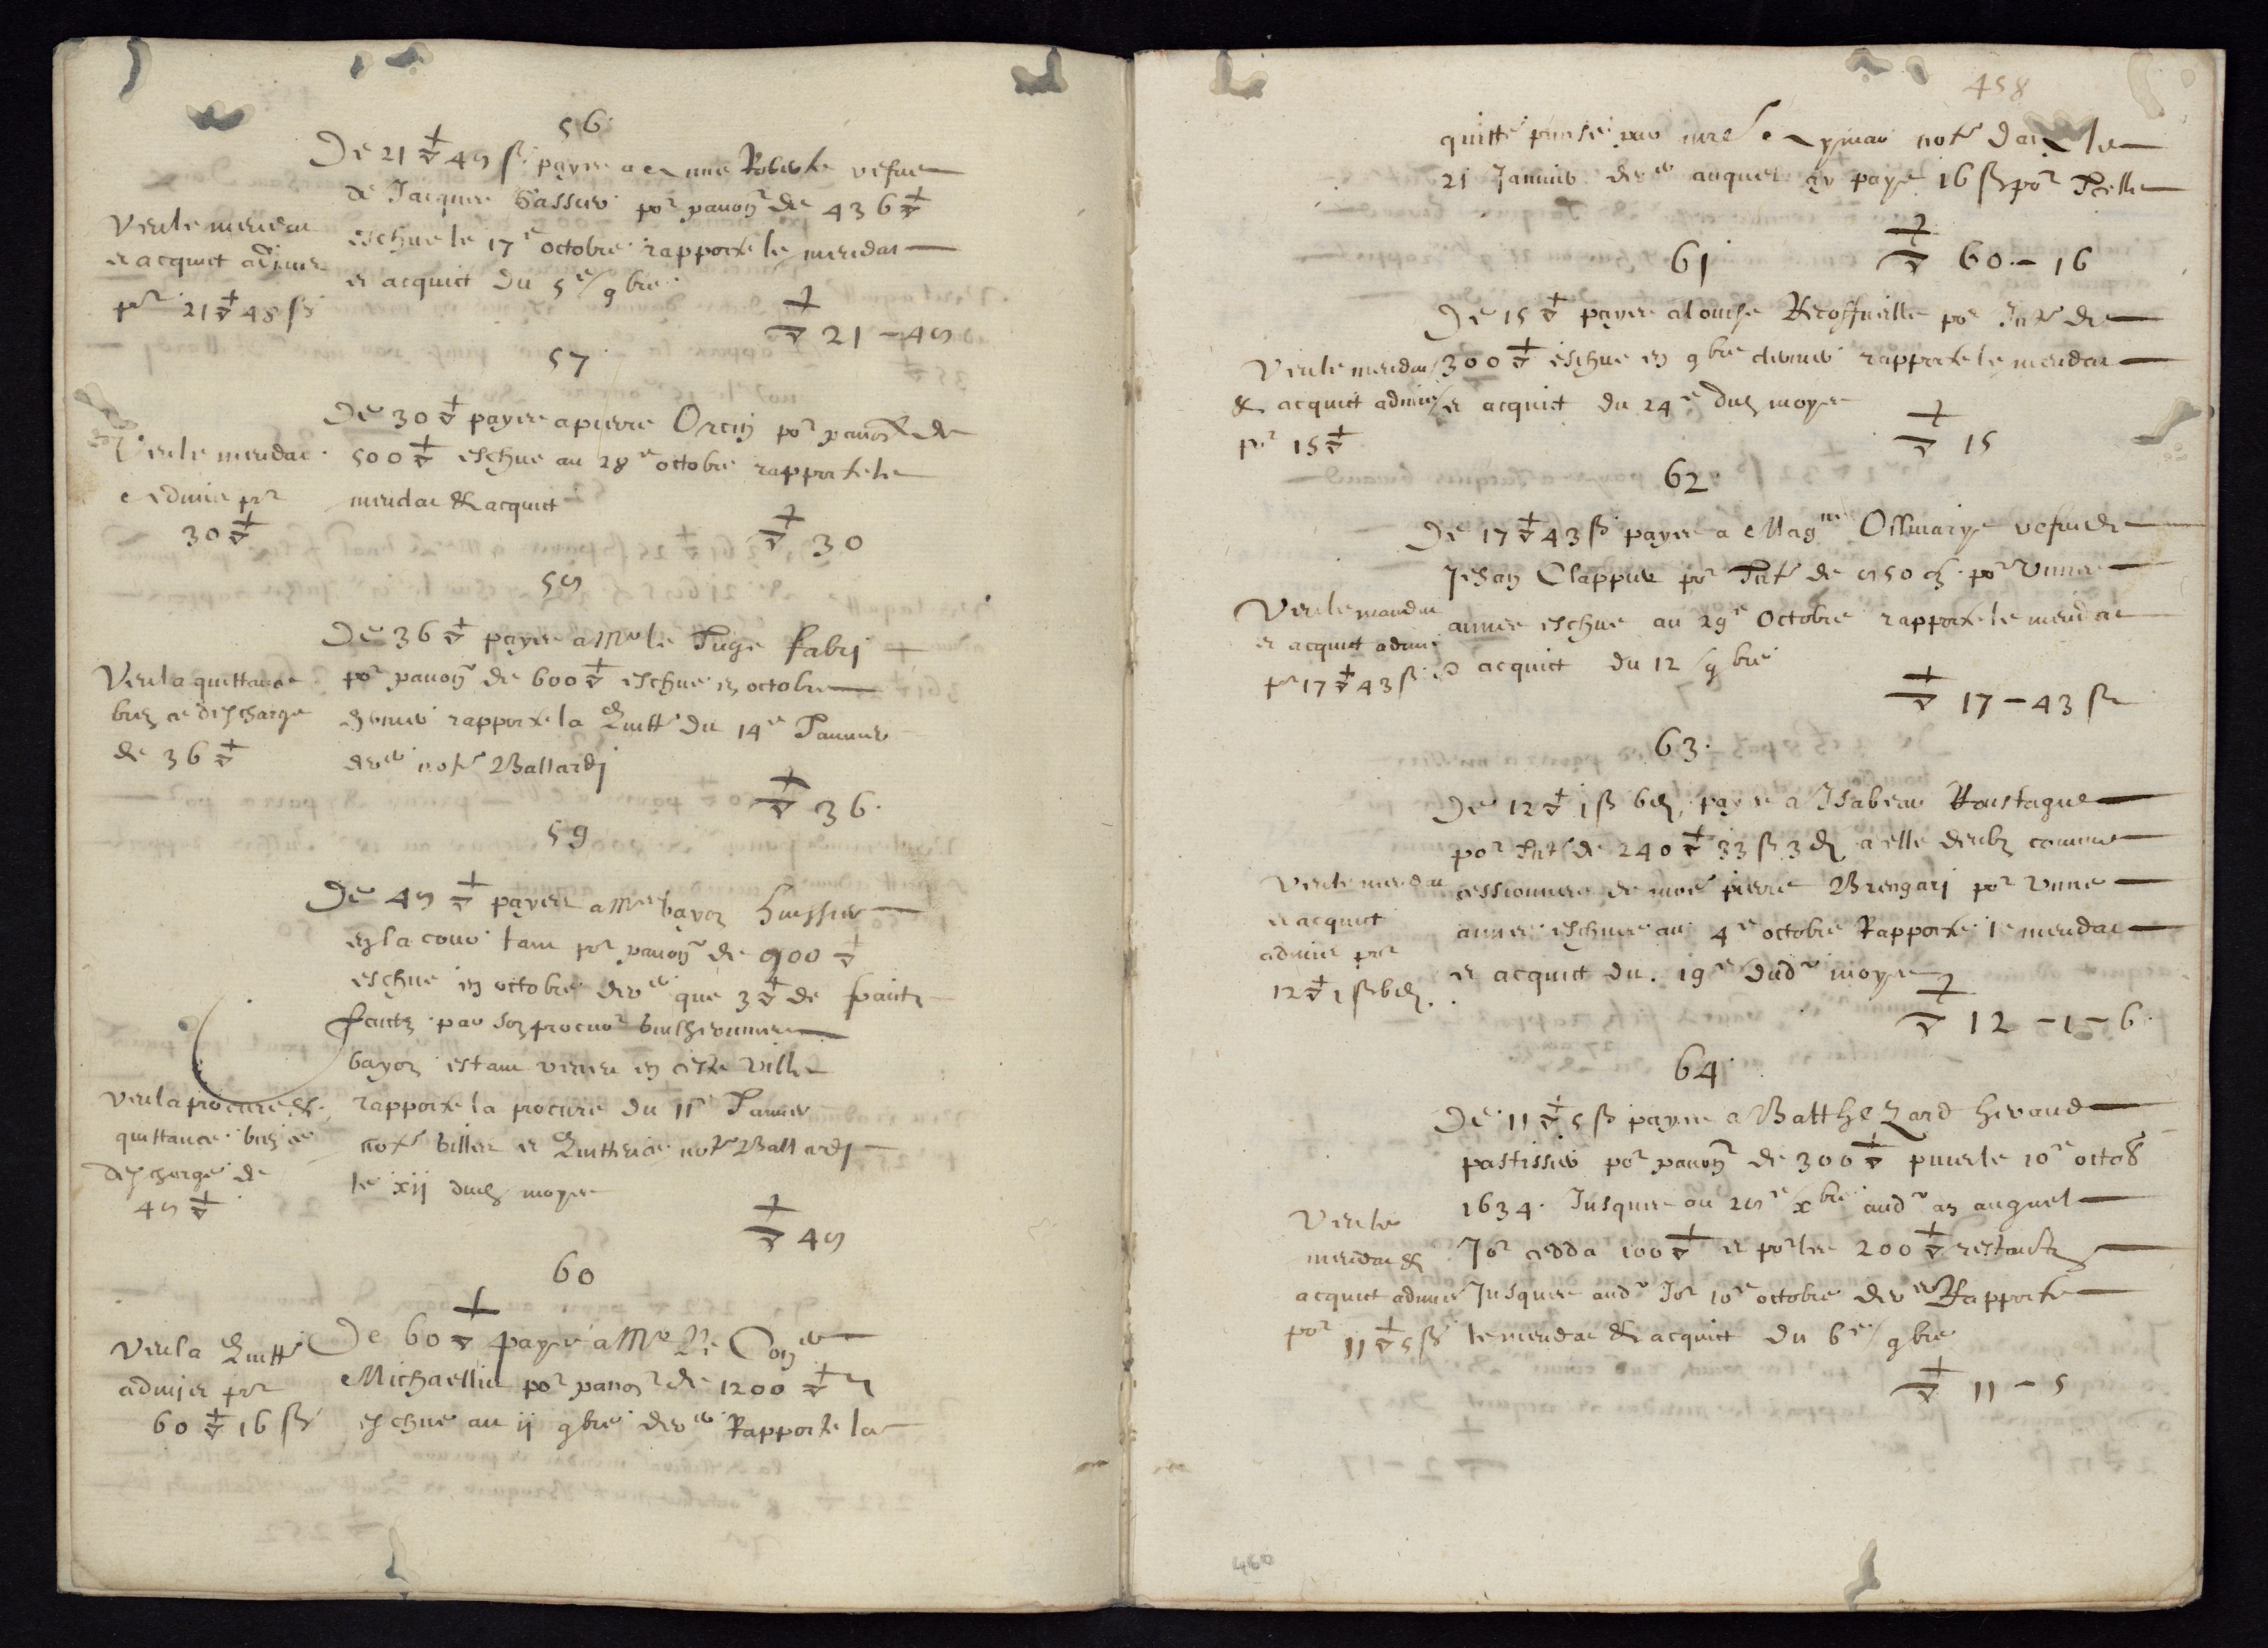 56
De 21 ▽ 48 ß payes a Anne Roberte vefue
de Jacques Gassier por panon de 436 ▽
eschue le 17e octobre rapporte le mendat
et acquit du 5e 9bre
▽ 21 - 48
Veu le mendat
et acquit admis
por 21 ▽ 48 ß
57
De 30 ▽ payes a pierre Orcin por panon de
500 ▽ eschue au 28e octobre rapporte le
mendat & acquit
▽ 30
Veu le mendat
Admis por
30 ▽
58
De 36 ▽ payes a Mr le Juge fabri
por panon de 600 ▽ eschue en octobre
dernier rapporte la quitte du 14e Janvier
der notre Ballardj
▽ 36
Veu la quittance
bien et descharge
de 36 ▽
59
De 48 ▽ payes a Mr bayon huissier
en la cour tant por panon de 900 ▽
eschue en octobre der que 3 ▽ de
faitz par son procur
bayon estant venu en ceste ville
rapporte la procure du 11e Janvier
notre billet et quittance notre Ballardj
le xij dud moys
▽ 48
Veu la procure &
quittance bien et
descharge de
48 ▽
60
De 60 ▽ paye a Mr Le Coner
Michaellis por panon de 1200 ▽
eschue au ij 9bre der Rapporte la
Veu la quitte
admises por
60 ▽ 16 ß
458
quitte prinse par me Aymar notre daix le
21 Janvier der auquel ay paye 16 ß por Icelle
▽ 60 - 16
61
De 15 ▽ payes a louise Recoffeille por Inte de
300 ▽ eschue en 9bre dernier rapporte le mendat
et acquit du 24e dud moys
▽ 15
Veu le mendat
& acquit admis
por 15 ▽
62
De 17 ▽ 43 ß payes a Magne Ollmarye vefue de
Jehan Clappier por Inte de 850 por Unne
annee eschue au 29e Octobre rapporte le mendat
et acquit du 12 9bre
▽ 17 - 43 ß
Veu le mandat
et acquit admis
por 17 ▽ 43 ß
63
De 12 ▽ 1 ß 6 d payes a Isabeau Roustagne
por Inte de 240 ▽ 33 ß 3 d a elle deubz comme
cessionnere de me pierre Brengarj por Unne
annee eschue au 4e octobre Rapporte le mendat
et acquit du 19e dud moys
▽ 12 - 1 - 6
Veu le mendat
et acquit
admis por
12 ▽ 1 ß 6 d
64
De 11 ▽ 5 ß payes a Batthezard heraud
pastissier por panon de 300 ▽ puis le 10e octob
1634 Jusques au 28e xbre aud an auquel
Jor cedda 100 ▽ et por les 200 ▽ restantz
Jusques aud Jor 10e octobre der Rapporte
le mendat & acquit du 6e 9bre
▽ 11 - 5
Veu le
mendat &
acquit admis
por 11 ▽ 5 ß
460